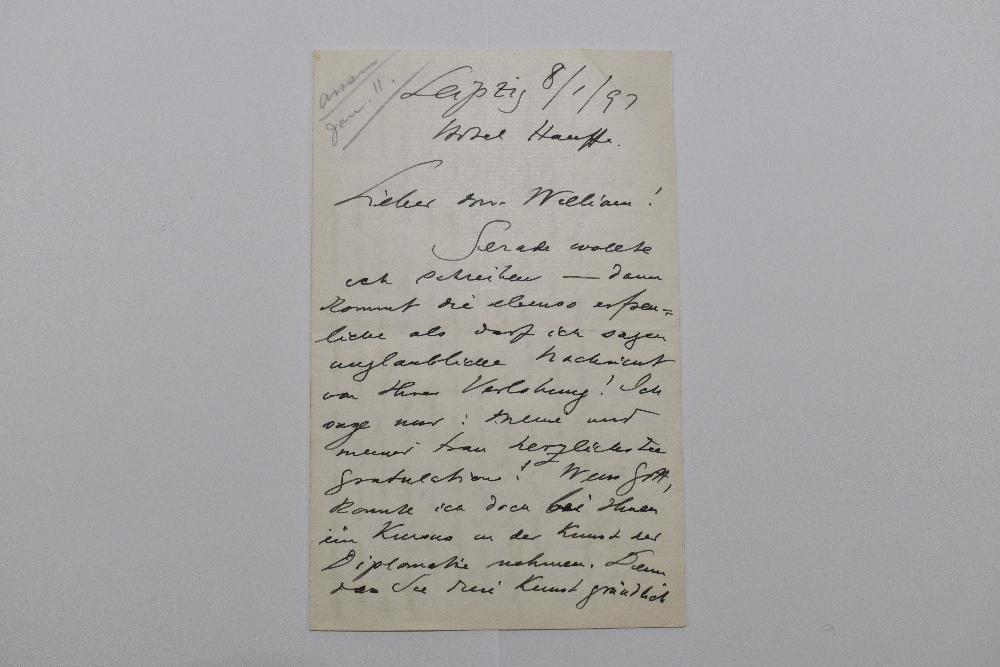 Jan. 11.
Leipzig 8/1/97
Hotel Hauffe.
Lieber William!
Gerade wollte
ich schreiben — dann
kommt die ebenso erfreu=
liche als darf ich sagen
unglaubliche Nachricht
von Ihrer Verlobung! Ich
sage nur: meine und
meiner Frau herzlichste
Gratulation! Mein Gott,
könnte ich doch bei Ihnen
ein Kursus in der Kunst der
Diplomatie nehmen. Denn
das Sie diese Kunst gründlich